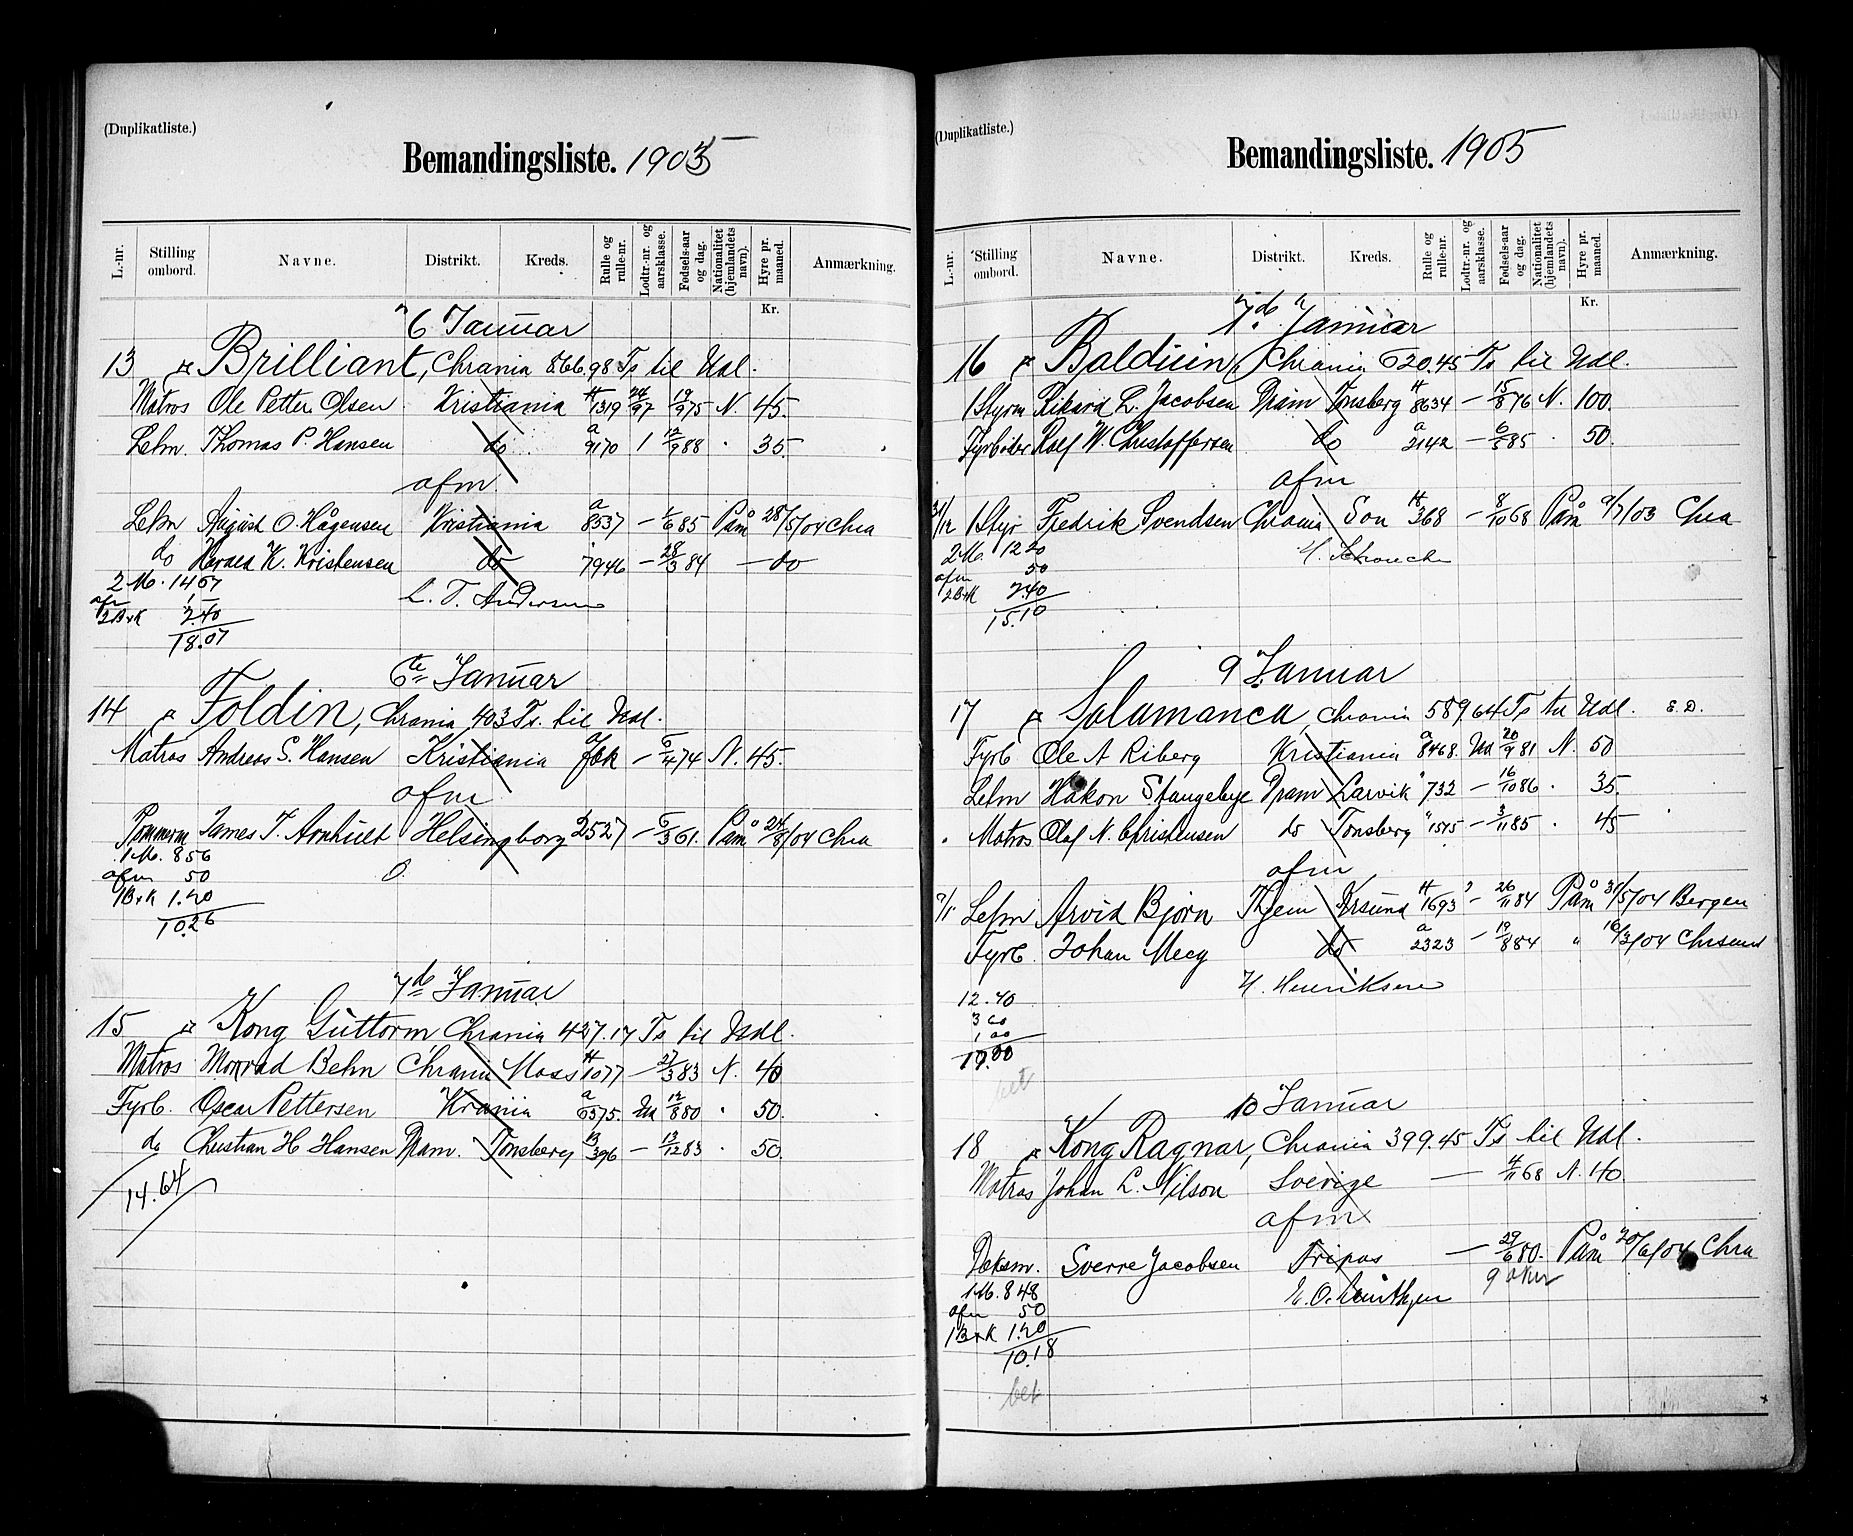 (Duplikatliste.)
Bemandingsliste. 1905
L.-nr. Stilling ombord. Navne. Distrikt. Kreds. Rulle og rulle-nr. Lodtr.-nr. og aarsklasse. Fødsels-aar og dag. Nationalitet (hjemlandets navn). Hyre pr. maaned. Anmærkning.
Kr.
6 Januar
13 Brilliant, Chrania 866.98 Ts til Udl.
Matros Ole Petter Olsen Kristiania 1319 24/97 19/9 75 N. 45.
Letm. Thomas P. Hansen do a 9170 1 12/9 88 " 35.
afm.
Letm August O. Hågensen Kristiania a 8537 – 1/6 85 Påm 28/5/04 Chra
do Harald K. Kristensen do 7946 – 28/3 84 – do
2 M. 14 67
afm 1,–
2 B+K 2.40
18.07
L. T. Andersen
6te Januar
14 Foldin, Chrania 403 Ts. til Udl.
Matros Andreas S. Hansen Kristiania – 6/4 74 N. 45.
afm
James T. Arnhult Helsingborg 2527 – 6/3 61. Påm 24/8/04 Chra
1 M. 8 56
afm 50
1 B+K 1.20
10.26
7de Januar
15 Kong Guttorm, Chrania 427.17 Ts til Udl.
Matros Monrad Behn Chrania Moss 1077 – 27/3 83 N. 40
Fyrb. Oscar Pettersen Krania a 6375. Ud 12/8 80 " 50.
do Christian H Hansen Dram. Tønsberg 396 – 13/12 83 " 50.
14.64
(Duplikatliste.)
Bemandingsliste. 1905
L.-nr. Stilling ombord. Navne. Distrikt. Kreds. Rulle og rulle-nr. Lodtr.-nr. og aarsklasse. Fødsels-aar og dag. Nationalitet (hjemlandets navn). Hyre pr. maaned. Anmærkning.
Kr.
7de Januar
16 Balduin, Chrania 620.45 Ts til Udl.
1 Styrm Rikard L. Jacobsen Dram Tønsberg 8634 – 15/8 76 N. 100.
Fyrbøder Rolf W. Christoffersen do a 2142 – 6/5 85 " 50.
afm
31/12 1 Styr Fredrik Svendsen Chrania Son 368 – 8/10 68 Påm 9/7/03 Chra
2 M. 12 20
afm 50
2 B+K 2.40
15.10
9 Januar
17 Salamanca, Chrania 589.64 Ts til Udl. E.D.
Fyrb Ole A Riberg Kristiania a 8468 Ud 20/9 81 N. 50
Letm Håkon Stangebye Dram Larvik " 732 – 16/10 86 " 35.
Matros Olaf N. Christensen do Tønsberg " 1515 – 3/11 85 " 45
afm
9/1 Letm Arvid Bjørn Thjem Krsund 1693 – 26/11 84 Påm 31/5/04 Bergen
Fyrb Johan Meeg do a 2323 – 19/8 84 " 16/3/04 Chrsund
H. Henriksen
12.40
3 60
1,00
17.00
bet
10 Januar
18 Kong Ragnar, Chrania 399.45 Ts til Udl.
Matros Johan L. Nilson Sverige – 4/11 68 N. 40.
afm
Dæksm. Sverre Jacobsen Fripas – 29/6 80. Påm 20/6/04 Chra
1 M. 8 48
afm 50
1 B+K 1.20
10.18
bet